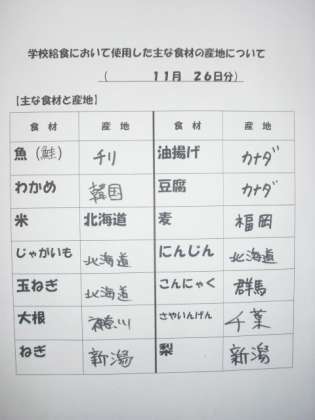 学校給食において使用した主な食材の産地について
（ 11月 26日分）
【主な食材と産地】
食 材 産 地 食 材 産 地
魚（鮭） チリ 油揚げ カナダ
わかめ 韓国 豆腐 カナダ
米 北海道 麦 福岡
じゃがいも 北海道 にんじん 北海道
玉ねぎ 北海道 こんにゃく 群馬
大根 神奈川 さやいんげん 千葉
ねぎ 新潟 梨 新潟